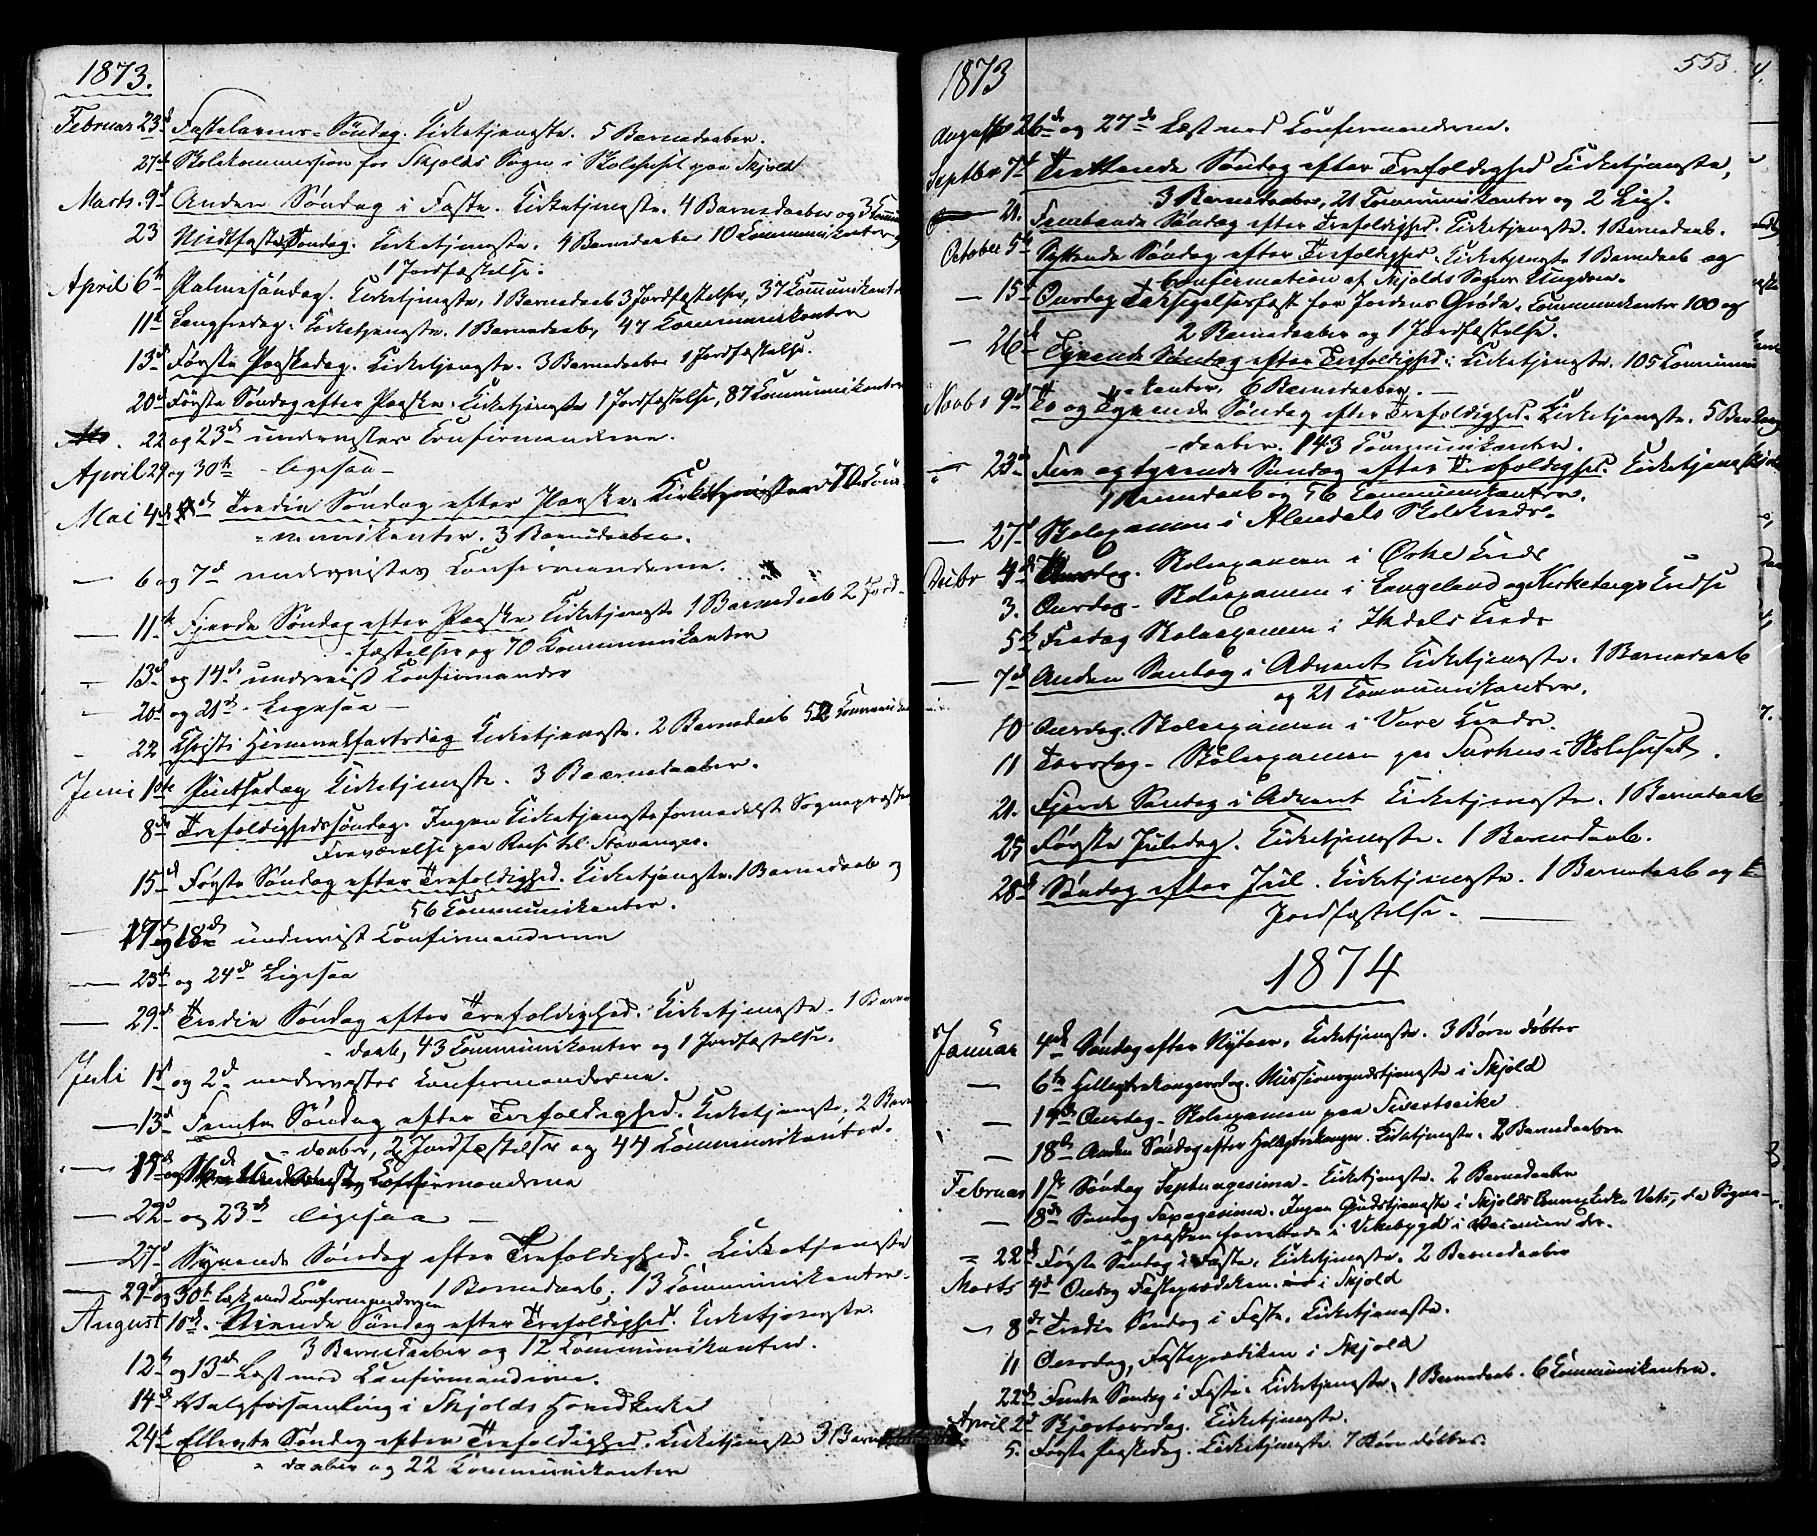 1873.
Februar 23d Fastelavens-Søndag. Kirketjeneste. 5 Barnedaaber.
27d Skolekommission for Skjolds Sogn i Skolehuset paa Skjold
Marts. 9d Anden Søndag i Faste. Kirketjeneste. 4 Barnedaaber og 3 Commu
23 Midtfaste Søndag. Kirketjeneste. 4 Barnedaaber 10 Communikanter og
1 Jordfæstelse.
April 6te Palmesøndag. Kirketjeneste, 1 Barnedaab 3 Jordfæstelser, 37 Communikanter
11te Langfredag. Kirketjeneste. 1 Barnedaab, 47 Communikanter
13d Første Paaskedag. Kirketjeneste. 3 Barnedaaber 1 Jordfæstelse.
20d Første Søndag efter Paaske. Kirketjeneste 1 Jordfæstelse, 87 Communikanter
22 og 23d undervistes Confirmanderne.
April 29 og 30te -ligesaa-
Mai 4de Tredie Søndag efter Paaske. Kirketjeneste 70 Com-
munikanter. 3 Barnedaaber.
— 6 og 7d undervistes Confirmanderne.
— 11te Fjerde Søndag efter Paaske Kirketjeneste 1 Barnedaab 2 Jord-
fæstelser og 70 Communikanter
- 13d og 14d undervist Confirmander
- 20d og 21d - Ligesaa -
- 22 Christi Himmelfartsdag Kirketjeneste. 2 Barnedaab 52 Communikan
Juni 1ste Pintsedag Kirketjeneste. 3 Barnedaaber.
8de Trefoldighedssøndag. Ingen Kirketjeneste formedelst Sognepræstens
Fraværelse paa Reise til Stavanger.
15d Første Søndag efter Trefoldighed. Kirketjeneste. 1 Barnedaab og
56 Communikanter.
— 17 og 18de undervist Confirmanderne
— 23d og 24d Ligesaa
— 29d Tredie Søndag efter Trefoldighed. Kirketjeneste. 1 Barne
daab, 43 Communikanter og 1 Jordfæstelse.
Juli 1st og 2d undervistes Confirmanderne.
— 13d Femte Søndag efter Trefoldighed. Kirketjeneste, 2 Barne
daaber, 2 Jordfæstelser og 44 Communikanter.
— 15d og 16d Undervist Confirmanderne
— 22d og 23d ligesaa —
— 27d Syvende Søndag efter Trefoldighed. Kirketjeneste
1 Barnedaab; 13 Communikanter.
— 29d og 30te Læst med Confirmanderne
August 10de. Niende Søndag efter Trefoldighed. Kirketjeneste.
3 Barnedaaber og 12 Communikanter.
12te og 13d Læst med Confirmanderne.
14d Valgforsamling i Skjolds Hovedkirke
24d Ellevte Søndag efter Trefoldighed. Kirketjeneste 3 Barne
daaber og 22 Communikanter
1873
553.
August 26de og 27de Læst med Confirmanderne.
Septbr 7d Trettende Søndag efter Trefoldighed Kirketjeneste,
3 Barnedaaber, 21 Communikanter og 2 Lig.
21. Femtende Søndag efter Trefoldighed. Kirketjeneste. 1 Barnedaab.
October 5te Syttende Søndag efter Trefoldighed. Kirketjeneste 1 Barnedaab og
Confirmation af Skjolds Sogns Ungdom.
— 15d Onsdag Taksigelsesfest for Jordens Grøde. Communikanter 100 og
2 Barnedaaber og 1 Jordfæstelse.
— 26d Tyvende Søndag efter Trefoldighed. Kirketjeneste. 105 Communi
kanter, 6 Barnedaaber.
Novbr 9d To og Tyvende Søndag efter Trefoldighed. Kirketjeneste. 5 Barne
daaber. 143 Communikanter.
— 23d Fire og tyvende Søndag efter Trefoldighed. Kirketjeneste
1 Barnedaab og 56 Communikanter.
— 27d Skolexamen i Alendals Skolekreds.
Decbr 4d Torsdag. Skolexamen i Ørke Kreds
3. Onsdag - Skolexamen i Langeland og Kirkebergs Kredse
5te Fredag Skolexamen i Isdals Kreds
— 7d Anden Søndag i Advent Kirketjeneste. 1 Barnedaab
og 21 Communikanter.
10 Onsdag. Skolexamen i Vore Kreds.
11 Torsdag - Skolexamen paa Aarhus i Skolehuset.
21. Fjerde Søndag i Advent Kirketjeneste. 1 Barnedaab
25 Første Juledag. Kirketjeneste. 1 Barnedaab.
28d Søndag efter Jul. Kirketjeneste. 1 Barnedaab og 1
Jordfæstelse.
1874
Januar 4de Søndag efter Nytaar, Kirketjeneste. 3 Børn døbte
— 6te Helligtrekongersdag. Missionsgudstjeneste i Skjold
— 14de Onsdag - Skolexamen paa Sivertseike
— 18de Anden Søndag efter Helligtrekonger. Kirketjeneste. 2 Barnedaaber
Februar 1ste Søndag Septuagesima. Kirketjeneste. 2 Barnedaaber
— 8de Søndag Sexagesima. Ingen Gudstjeneste i Skjolds Annexkirke Vats, da Sogne-
præsten forrettede i Vikebygd i Vacancen der.
- 22de Første Søndag i Faste, Kirketjeneste. 2 Barnedaaber
Marts 4d Onsdag Fasteprædiken i Skjold
— 8de Tredie Søndag i Faste, Kirketjeneste.
11 Onsdag, Fasteprædiken i Skjold
22de Femte Søndag i Faste. Kirketjeneste, 1 Barnedaab. 6 Communikanter.
April 2d Skjærtorsdag. Kirketjeneste.
5. Første Paaskedag. Kirketjeneste 7 Børn døbtes.